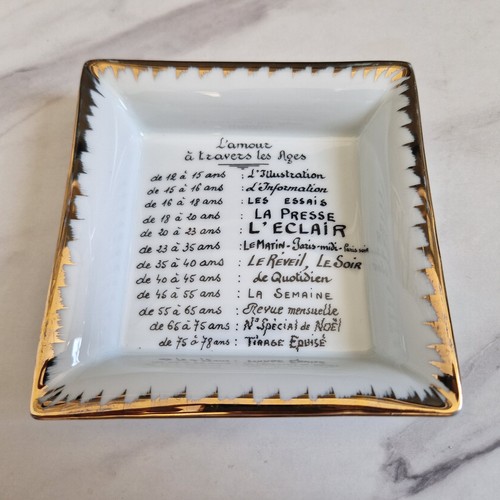 L'amour
à travers les Ages
de 12 à 15 ans : L'Illustration
de 15 à 16 ans : d'Information
de 16 à 18 ans : LES ESSAIS
de 18 à 20 ans : LA PRESSE
de 20 à 23 ans : L'ECLAIR
de 23 à 35 ans : LE MATIN - Paris-midi - Paris-soir
de 35 à 40 ans : LE REVEIL, LE SOIR
de 40 à 45 ans : Le Quotidien
de 46 à 55 ans : LA SEMAINE
de 55 à 65 ans : Revue mensuelle
de 66 à 75 ans : No Spécial de NOËL
de 75 à 78 ans : TIRAGE EPUISÉ